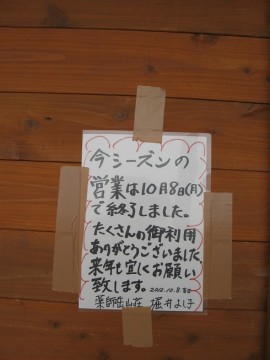 今シーズンの
営業は10月8日(月)
で終了しました。
たくさんの御利用
ありがとうございました
来年も宜しくお願い
致します。2012.10.8.
薬師岳山荘 堀井よし子